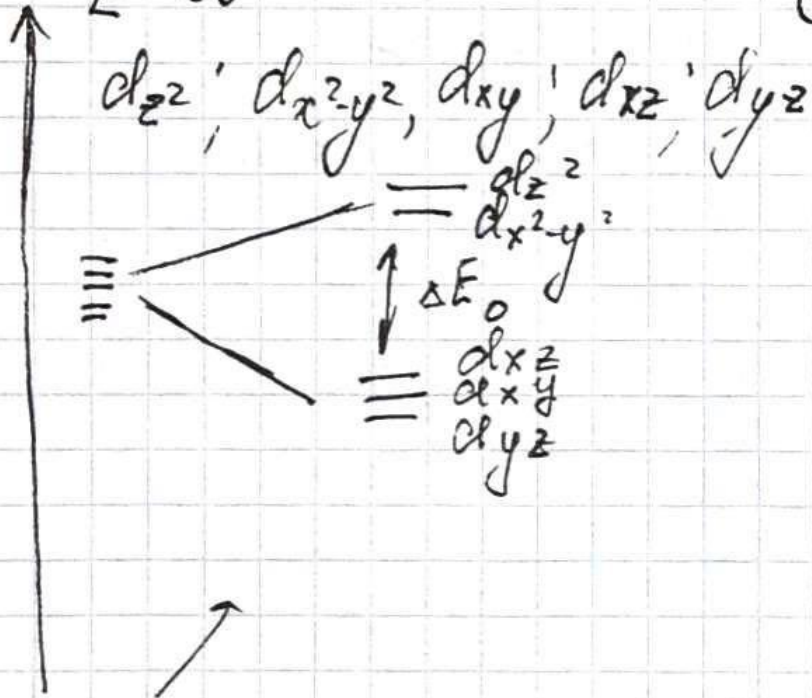 dz², dx²-y², dxy, dxz, dyz
dz²
dx²-y²
ΔE₀
dxz
dxy
dyz